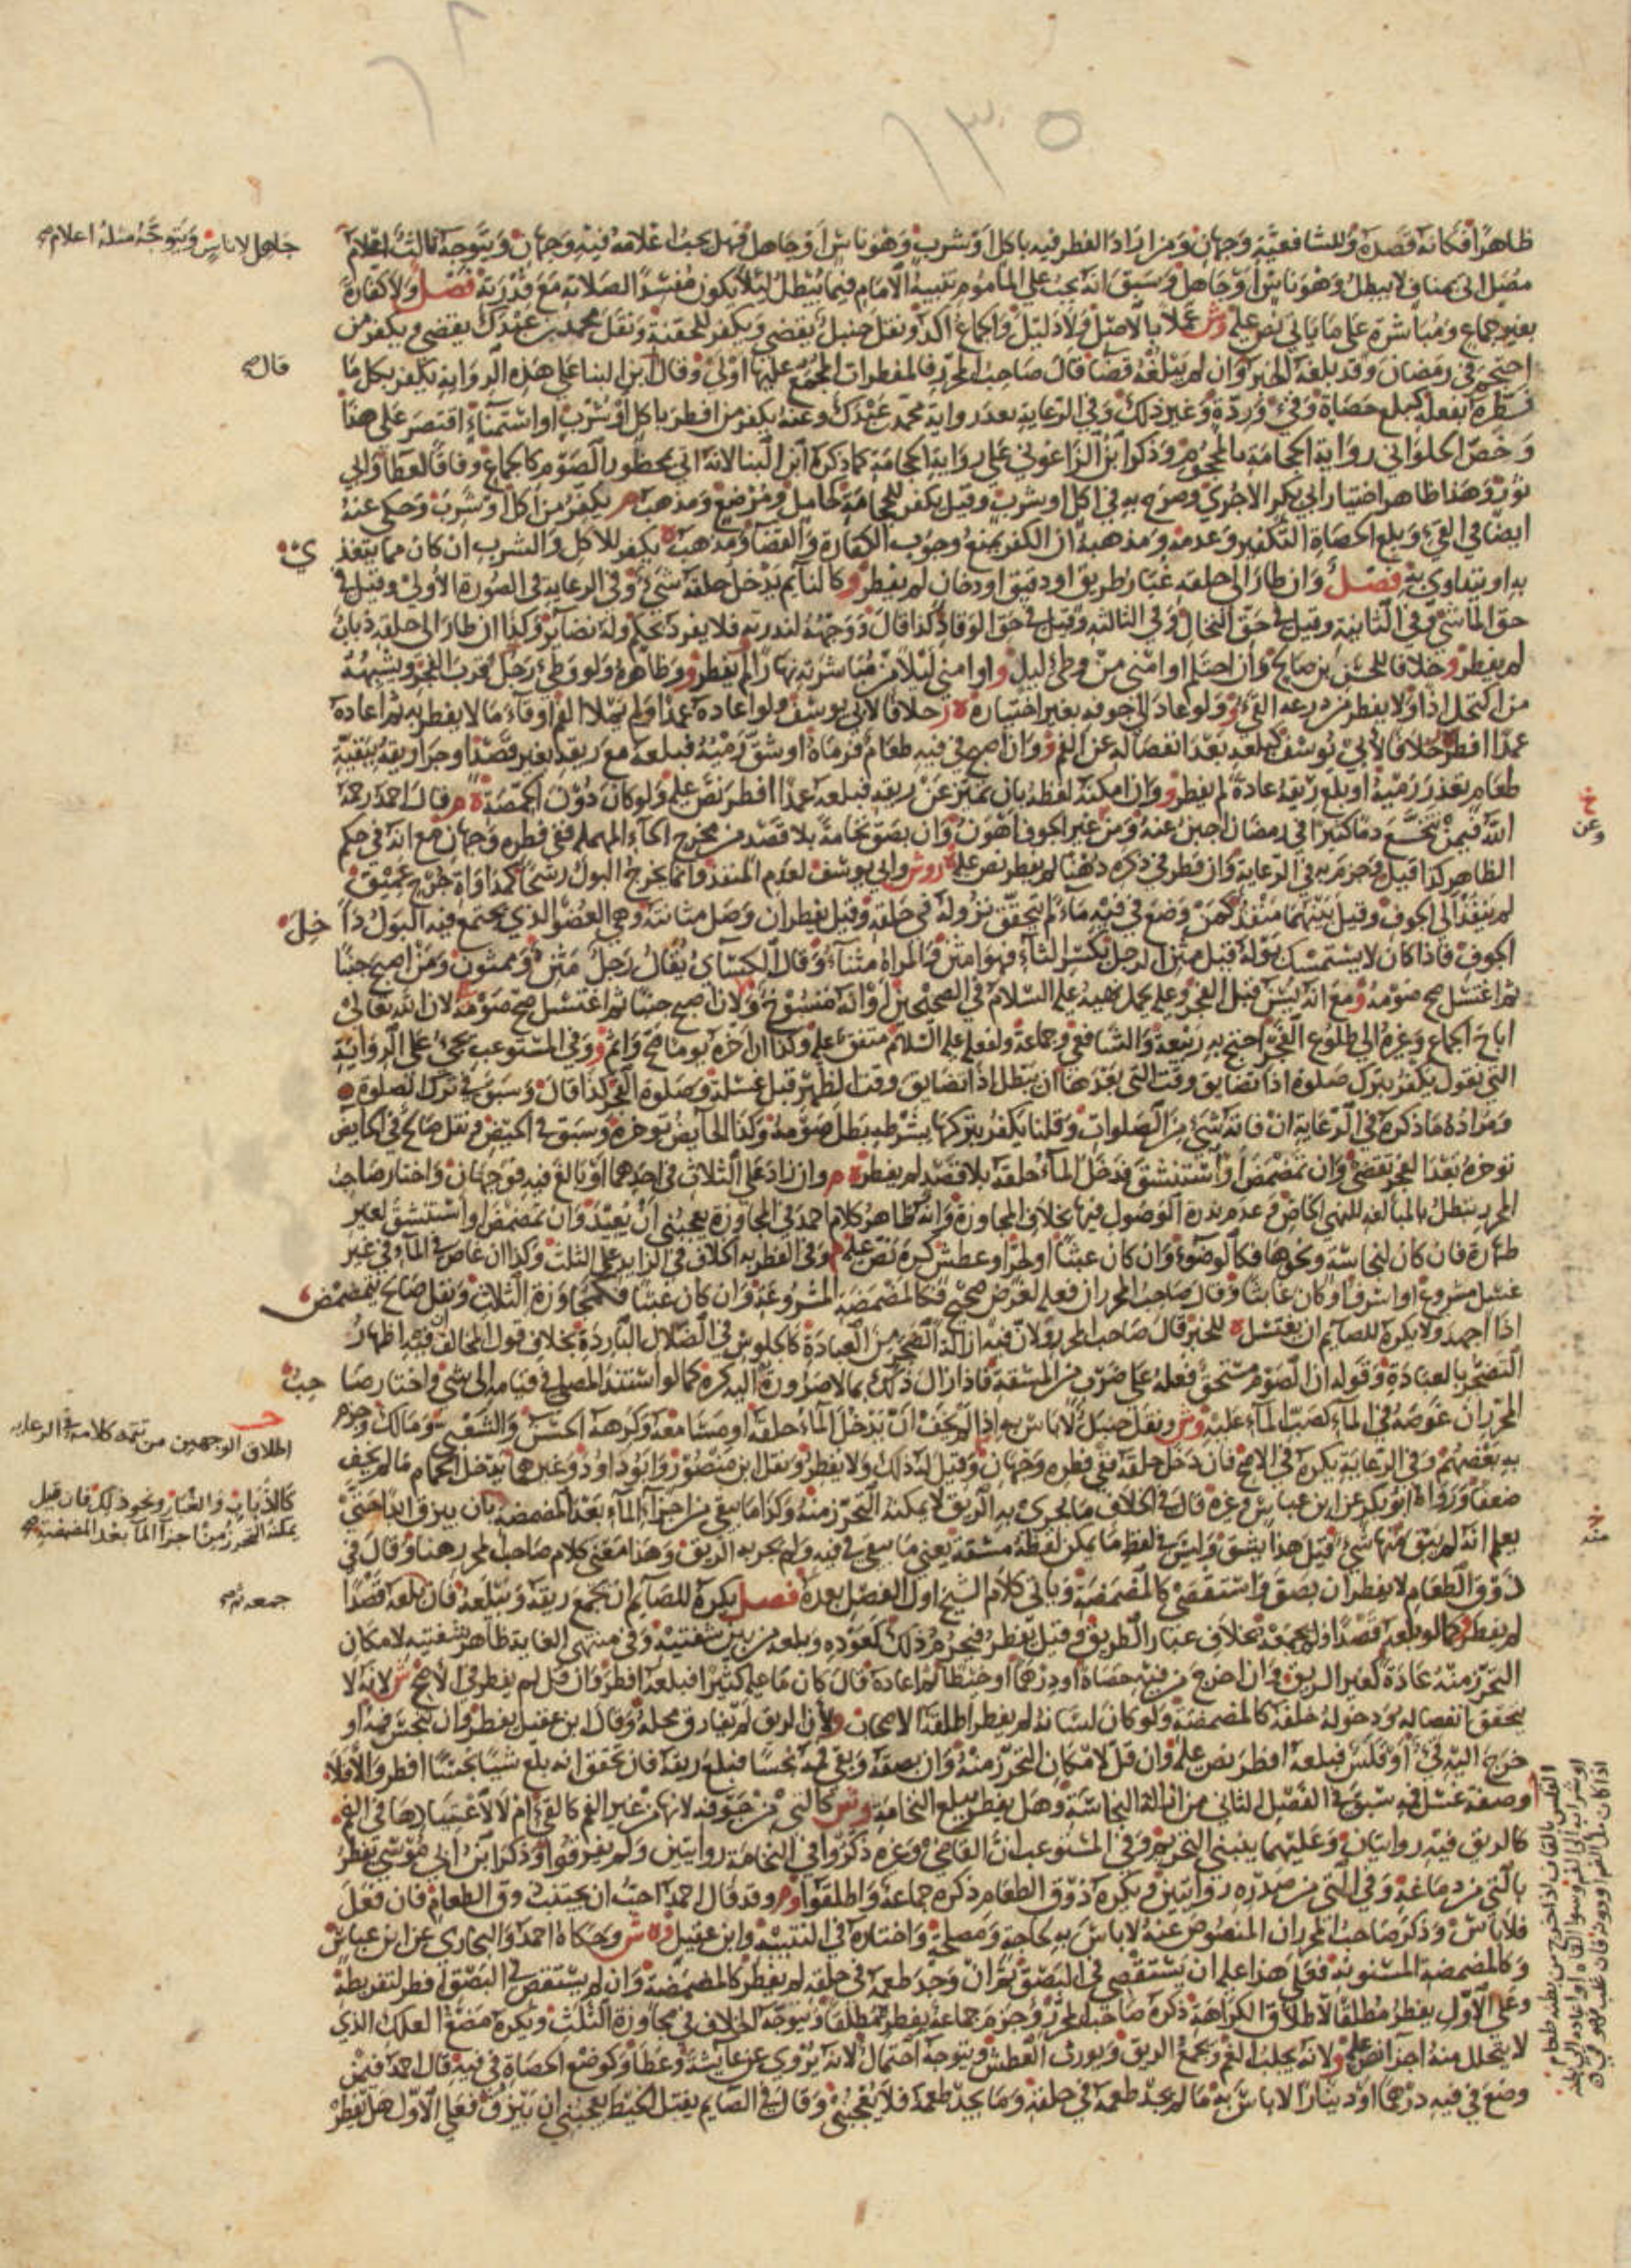 ١٣٥
ظاهرا فكأنه قصده وللشافعية وجهان ومن اراد الفطر فيه باكل او شرب وهو ناس او جاهل فهل يجب اعلامه فيه وجهان ويتوجه ثالث اعلام
جاهل لا ناس ويتوجه مثله اعلام
مصل اتى بمناف لا يبطل وهو ناس او جاهل وسبق انه يجب على المأموم تنبيه الامام فيما يبطل لئلا يكون مفسدا لصلاته مع قدرته فصل ولا كفارة
بغير جماع ومباشرة على ما ياتي نص عليه وش عملا بالاصل ولا دليل والجماع اكد ونقل حنبل يقضي ويكفر للحقنة ونقل محمد بن عبدك يقضي ويكفر من
احتجم في رمضان وقد بلغه الخبر وان لم يبلغه قضا قال صاحب المحرر فالمفطرات المجمع عليها اولى وقال ابن البنا على هذه الرواية يكفر بكل ما
قال
فطره بفعله كبلع حصاة وقيء وردة وغير ذلك وفي الرعاية بعد رواية محمد بن عبدك وعنه يكفر من افطر باكل او شرب او استمناء اقتصر على هذا
وخص الحلواني رواية الحجامة بالمحجوم وذكر ابن الزاغوني على رواية الحجامة كما ذكره ابن البنا لانه اتى بمحظور الصوم كالجماع وفاقا لعطا وابي
ثور وهذا ظاهر اختيار ابي بكر الاجري وصرح به في اكل او شرب وقيل يكفر للحجامة كحامل ومرضع ومذهب م يكفر من اكل او شرب وحكي عنه
ايضا في القيء وبلع الحصاة التكفير وعدمه ومذهبه ان الكفر يمنع وجوب الكفارة والقضاء ومذهب ه يكفر للاكل والشرب ان كان مما يتغذى
به او يتداوى به فصل وان طار الى حلقه غبار طريق او دقيق او دخان لم يفطر و كالنائم يدخل حلقه شيء وفي الرعاية في الصورة الاولى وقيل في
حق الماشي وفي الثانية وقيل في حق النخال وفي الثالثة وقيل في حق الوقاد كذا قال ووجهه لندرته فلا يفرد بحكم وله نظائر وكذا ان طار الى حلقه ذباب
لم يفطر و خلافا للحسن بن صالح وان احتلم او امنى من وطئ ليل و او امنى ليلا من مباشرته نهارا لم يفطر و وظاهره ولو وطئ رجل قرب الفجر ويشبهه
من اكتحل اذا ولا يفطر من ذرعه القيء و ولو عاد الى جوفه بغير اختياره ه ر خلافا لابي يوسف ولو اعاده عمدا ولم يملا الفم او قاء ما لا يفطر به ثم اعاده
عمدا افطر خلافا لابي يوسف كبلعه بعد انفصاله عن الفم و وان اصبح في فيه طعام فرماه او شق رميه فبلعه مع ريقه بغير قصد او جرى ريقه ببقية
طعام تعذر رميه او بلع ريقه عادة لم يفطر و وان امكنه لفظه بان تميز عن ريقه فبلعه عمدا افطر نص عليه ولو كان دون الحمصة ه م قال احمد رحمه
الله فيمن تنخع دما كثيرا في رمضان اجبن عنه ومن غير الجوف اهون وان بصق نخامة بلا قصد من مخرج الحاء المهملة ففي فطره وجهان مع انه في حكم
وعن
الظاهر كذا قيل وجزم به في الرعاية وان قطر في ذكره دهنا لم يفطر نص عليه ه ر وش وابي يوسف لعدم المنفذ وانما يخرج البول رشحا كمداواة جرح عميق
لم ينفذ الى الجوف وقيل بينهما منفذ كمن وضع في فيه ماء لم يتحقق نزوله في حلقه وقيل يفطر ان وصل مثانته وهي العضو الذي يجتمع فيه البول داخل
الجوف فاذا كان لا يستمسك بوله قيل مثن الرجل بكسر الثاء فهو امثن والمراة مثناء وقال الكسائي يقال رجل مثن وممثون ومن اصبح جنبا
ثم اغتسل صح صومه و مع انه يسن قبل الفجر وعليه يحمل نهيه عليه السلام في الصحيحين او انه منسوخ ولان من اصبح جنبا ثم اغتسل صح صومه لان الله تعالى
اباح الجماع وغيره الى طلوع الفجر احتج به ربيعة والشافعي وجماعة ولفعله عليه السلام متفق عليه وكذا ان اخره يوما صح واثم و وفي المستوعب يجيء على الرواية
التي تقول يكفر بترك صلاة اذا تضايق وقت التي بعدها ان يبطل اذا تضايق وقت الظهر قبل غسله وصلوة الفجر كذا قال وسبق في ترك الصلوة
ومراده ما ذكره في الرعاية ان فاته شيء من الصلوات وقلنا يكفر بتركها بشرطه بطل صومه وكذا الحائض تؤخره وسبق في الحيض ونقل صالح في الحائض
تؤخره بعد الفجر تقضي وان تمضمض او استنشق فدخل الماء حلقه بلا قصد لم يفطر ه م وان زاد على الثلاث في احدهما او بالغ فيه فوجهان واختار صاحب
المحرر يبطل بالمبالغة للنهي الخاص وعدم ندرة الوصول فيها بخلاف المجاوزة وانه ظاهر كلام احمد في المجاوزة يعجبني ان يعيد وان تمضمض او استنشق لغير
طهارة فان كان لنجاسة ونحوها فكالوضوء وان كان عبثا او لحر او عطش كره نص عليه م وفي الفطر به الخلاف في الزايد على الثلث وكذا ان غاص في الماء في غير
غسل مشروع او اسرف او كان عابثا وقال صاحب المحرر ان فعله لغرض صحيح فكالمضمضة المشروعة وان كان عبثا فكمجاوزة الثلث ونقل صالح يتمضمض
اذا اجهد ولا يكره للصايم ان يغتسل ه للخبر قال صاحب المحرر ولان فيه ازالة الضجر من العبادة كالجلوس في الظلال الباردة بخلاف قول المخالف ان فيه اظهار
التضجر بالعبادة وقوله ان الصوم مستحق فعله على ضرب من المشقة فاذا زال ذلك بما لا ضرورة اليه كره كما لو استند المصلي في قيامه الى شيء واختار صاحب
المحرر ان غوصه في الماء كصب الماء عليه وش ونقل حنبل لا باس به اذا لم يخف ان يدخل الماء حلقه او مسامعه وكرهه الحسن والشعبي ومالك وجزم
به بعضهم وفي الرعاية يكره في الاصح فان دخل حلقه ففي فطره وجهان وقيل له ذلك ولا يفطر ونقل ابن منصور وابو داود وغيرهما يدخل الحمام ما لم يخف
اطلاق الوجهين من تتمة كلامه في الرعاية
ضعفا ورواه ابو بكر عن ابن عباس وغيره قال في الخلاف ما يجري به الريق لا يمكنه التحرز منه وكذا ما يبقى من اجزاء الماء بعد المضمضة بان يبزق ابدا حتى
كالذباب والغبار ونحو ذلك فان قيل
يمكنه التحرز من اجزا الما بعد المضمضة
يعلم انه لم يبق منها شيء قيل هذا يشق وليس في لفظ ما يمكن لفظه مشقة يعني ما يبقى في فيه ولم يجر به الريق وهذا معنى كلام صاحب المحرر هنا وقال في
منه
ذوق الطعام لا يفطر ان بصق واستقصى كالمضمضة وياتي كلام الشيخ اول الفصل بعده فصل يكره للصايم ان يجمع ريقه ويبلعه فان بلعه قصدا
لم يفطر و كما لو بلعه قصدا ولم يجمعه بخلاف غبار الطريق وقيل يفطر فيحرم ذلك كعوده وبلعه من بين شفتيه وفي منتهى الغاية ظاهر شفتيه لامكان
التحرز منه عادة كغير الريق وان اخرج من فيه حصاة او درهما او خيطا ثم اعاده قال كان ما عليه كثيرا فبلعه افطر وان قل لم يفطر في الاصح ش لانه لا
يتحقق انفصاله ودخوله حلقه كالمضمضة ولو كان لسانه لم يفطر اطلقه الاصحاب ولان الريق لم يفارق محله وقال ابن عقيل يفطر وان تنجس فمه او
خرج اليه قيء او قلس فبلعه افطر نص عليه وان قل لامكان التحرز منه وان بصقه وبقي فمه نجسا فبلع ريقه فان تحقق انه بلع شيئا نجسا افطر والا فلا
وصفة غسل فيه سبق في الفصل الثاني من ازالة النجاسة وهل يفطر ببلع النخامة وش كالتي من جوفه لانها من غير الفم كالقيء ام لا لاعتيادها في الفم
كالريق فيه روايتان وعليهما ينبني التحريم وفي المستوعب ان القاضي وغيره ذكروا في النخامة روايتين ولم يفرقوا وذكر ابن ابي موسى يفطر
بالتي من دماغه وفي التي من صدره روايتين ويكره ذوق الطعام ذكره جماعة واطلقوا وم وقد قال احمد احب ان يجتنب ذوق الطعام فان فعل
فلا باس وذكر صاحب المحرر ان المنصوص عنه لا باس به لحاجة ومصلحة واختاره في التنبيه وابن عقيل وه ش وحكاه احمد والبخاري عن ابن عباس
وكالمضمضة المسنونة فعلى هذا عليه ان يستقصي في البصق ثم ان وجد طعمه في حلقه لم يفطر كالمضمضة وان لم يستقص في البصق افطر لتفريطه
وعلى الاول يفطر مطلقا لاطلاق الكراهة ذكره صاحب المحرر وجزم جماعة بفطره مطلقا ويتوجه الخلاف في مجاوزة الثلث ويكره مضغ العلك الذي
لا يتحلل منه اجزاء نص عليه ولانه يجلب الفم ويجمع الريق ويورث العطش ويتوجه احتمال لانه يروى عن عايشة وعطا وكوضع الحصاة في فيه قال احمد فيمن
وضع في فيه درهما او دينارا لا باس به ما لم يجد طعمه في حلقه وما يجد طعمه فلا يعجبني وقال في الصايم يفتل الخيط يعجبني ان يبزق فعلى الاول هل يفطر